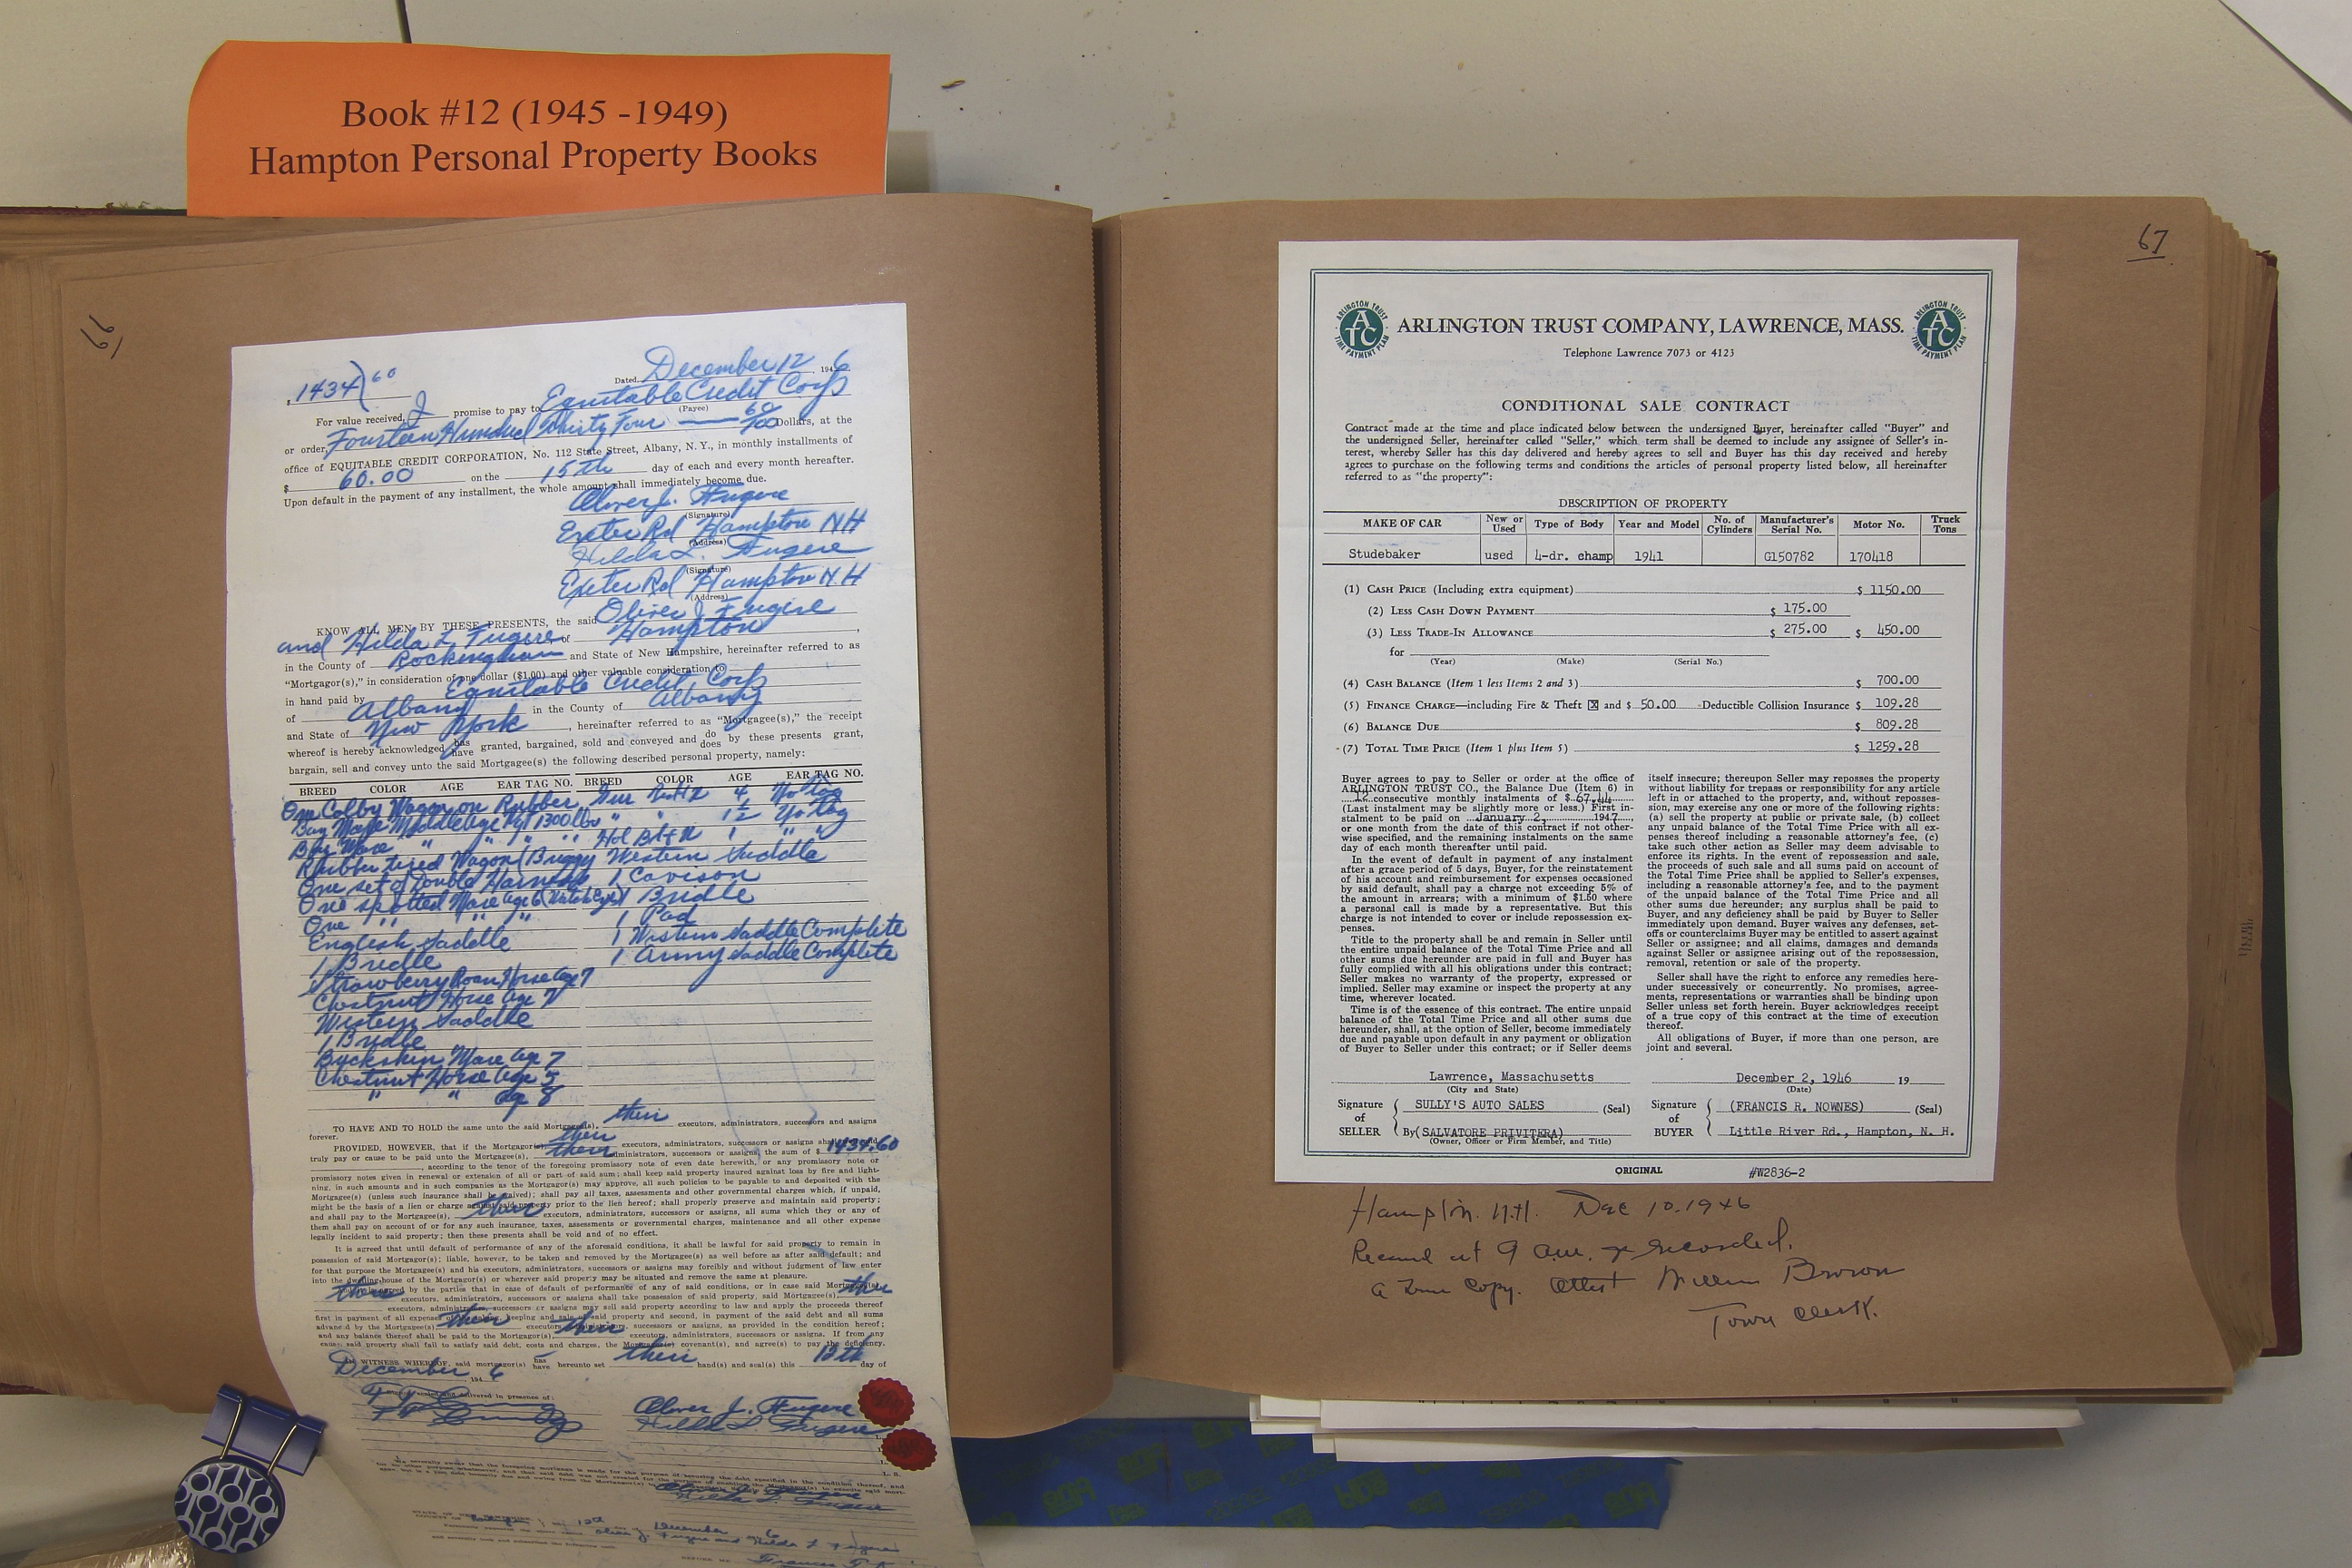 Book #12 (1945 -1949)
Hampton Personal Property Books
$ 1434 60
Dated December 12, 1946
For value received, I promise to pay to Equitable Credit Corp
(Payee)
or order, Fourteen Hundred Thirty Four — 60/100 Dollars, at the
office of EQUITABLE CREDIT CORPORATION, No. 112 State Street, Albany, N. Y., in monthly instalments of
$ 60.00 on the 15th day of each and every month hereafter.
Upon default in the payment of any installment, the whole amount shall immediately become due.
Oliver J. Fugere
(Signature)
Exeter Rd Hampton NH
(Address)
Hilda L. Fugere
(Signature)
Exeter Rd Hampton NH
(Address)
KNOW ALL MEN BY THESE PRESENTS, the said Oliver J. Fugere
and Hilda L Fugere of Hampton,
in the County of Rockingham and State of New Hampshire, hereinafter referred to as
"Mortgagor(s)," in consideration of one dollar ($1.00) and other valuable consideration to
in hand paid by Equitable Credit Corp
of Albany in the County of Albany
and State of New York, hereinafter referred to as "Mortgagee(s)," the receipt
whereof is hereby acknowledged has have granted, bargained, sold and conveyed and do does by these presents grant,
bargain, sell and convey unto the said Mortgagee(s) the following described personal property, namely:
BREED COLOR AGE EAR TAG NO. BREED COLOR AGE EAR TAG NO.
One Colby Wagon on Rubber 4 No Tag
Bay Mare Middle age Wgt 1300 lbs " " 1½ No Tag
Bay Mare " " " " Hol 1 " "
Rubber tired Wagon (Buggy Western Saddle
One set of Double Harness 1 Cavison
One spotted Mare age 6 1 Bridle
One " " " " 1 Pad
English Saddle 1 Western Saddle Complete
1 Bridle 1 Army Saddle Complete
Strawberry Roan Horse age 7
Chestnut Horse age 7
Western Saddle
1 Bridle
Buckskin Mare age 7
Chestnut Horse age 5
" " age 8
TO HAVE AND TO HOLD the same unto the said Mortgagee(s), their executors, administrators, successors and assigns
forever.
PROVIDED, HOWEVER, that if the Mortgagor(s), their executors, administrators, successors or assigns shall
truly pay or cause to be paid unto the Mortgagee(s), their administrators, successors or assigns, the sum of $ 1434.60
, according to the tenor of the foregoing promissory note of even date herewith, or any promissory note or
promissory notes given in renewal or extension of all or part of said sum; shall keep said property insured against loss by fire and light-
ning, in such amounts and in such companies as the Mortgagor(s) may approve, all such policies to be payable to and deposited with the
Mortgagee(s) (unless such insurance shall be waived); shall pay all taxes, assessments and other governmental charges which, if unpaid,
might be the basis of a lien or charge against said property prior to the lien hereof; shall properly preserve and maintain said property;
and shall pay to the Mortgagee(s), their executors, administrators, successors or assigns, all sums which they or any of
them shall pay on account of or for any such insurance, taxes, assessments or governmental charges, maintenance and all other expense
legally incident to said property; then these presents shall be void and of no effect.
It is agreed that until default of performance of any of the aforesaid conditions, it shall be lawful for said property to remain in
possession of said Mortgagor(s); liable, however, to be taken and removed by the Mortgagee(s) as well before as after said default; and
for that purpose the Mortgagee(s) and his executors, administrators, successors or assigns may forcibly and without judgment of law enter
into the dwelling-house of the Mortgagor(s) or wherever said property may be situated and remove the same at pleasure.
agreed by the parties that in case of default of performance of any of said conditions, or in case said Mortgagor(s), their
executors, administrators, successors or assigns shall take possession of said property, said Mortgagee(s), their
executors, administrators, successors or assigns may sell said property according to law and apply the proceeds thereof
first in payment of all expenses of the taking, keeping and sale of said property and second, in payment of the said debt and all sums
advanced by the Mortgagee(s), their executors, administrators, successors or assigns, as provided in the condition hereof;
and any balance thereof shall be paid to the Mortgagor(s), their executors, administrators, successors or assigns. If from any
cause, said property shall fail to satisfy said debt, costs and charges, the Mortgagor(s) covenant(s), and agree(s) to pay the deficiency.
IN WITNESS WHEREOF, said mortgagor(s) has have hereunto set their hand(s) and seal(s) this 12th day of
December, 1946
sealed and delivered in presence of:
Oliver J. Fugere
Hilda L. Fugere
L. S.
Hilda L. Fugere
12th December 6
Oliver J. Fugere and Hilda L Fugere
67
ARLINGTON TRUST COMPANY, LAWRENCE, MASS.
ARLINGTON TRUST
ATC
TIME PAYMENT PLAN
ARLINGTON TRUST
ATC
TIME PAYMENT PLAN
Telephone Lawrence 7073 or 4123
CONDITIONAL SALE CONTRACT
Contract made at the time and place indicated below between the undersigned Buyer, hereinafter called "Buyer" and
the undersigned Seller, hereinafter called "Seller," which term shall be deemed to include any assignee of Seller's in-
terest, whereby Seller has this day delivered and hereby agrees to sell and Buyer has this day received and hereby
agrees to purchase on the following terms and conditions the articles of personal property listed below, all hereinafter
referred to as "the property":
DESCRIPTION OF PROPERTY
MAKE OF CAR New or Used Type of Body Year and Model No. of Cylinders Manufacturer's Serial No. Motor No. Truck Tons
Studebaker used 4-dr. champ 1941 G150782 170418
(1) CASH PRICE (Including extra equipment) $ 1150.00
(2) LESS CASH DOWN PAYMENT $ 175.00
(3) LESS TRADE-IN ALLOWANCE $ 275.00 $ 450.00
for
(Year) (Make) (Serial No.)
(4) CASH BALANCE (Item 1 less Items 2 and 3) $ 700.00
(5) FINANCE CHARGE—including Fire & Theft ☒ and $ 50.00 Deductible Collision Insurance $ 109.28
(6) BALANCE DUE $ 809.28
(7) TOTAL TIME PRICE (Item 1 plus Item 5) $ 1259.28
Buyer agrees to pay to Seller or order at the office of
ARLINGTON TRUST CO., the Balance Due (Item 6) in
12 consecutive monthly instalments of $ 67.44
(Last instalment may be slightly more or less.) First in-
stalment to be paid on January 2, 1947,
or one month from the date of this contract if not other-
wise specified, and the remaining instalments on the same
day of each month thereafter until paid.
In the event of default in payment of any instalment
after a grace period of 5 days, Buyer, for the reinstatement
of his account and reimbursement for expenses occasioned
by said default, shall pay a charge not exceeding 5% of
the amount in arrears; with a minimum of $1.50 where
a personal call is made by a representative. But this
charge is not intended to cover or include repossession ex-
penses.
Title to the property shall be and remain in Seller until
the entire unpaid balance of the Total Time Price and all
other sums due hereunder are paid in full and Buyer has
fully complied with all his obligations under this contract;
Seller makes no warranty of the property, expressed or
implied. Seller may examine or inspect the property at any
time, wherever located.
Time is of the essence of this contract. The entire unpaid
balance of the Total Time Price and all other sums due
hereunder, shall, at the option of Seller, become immediately
due and payable upon default in any payment or obligation
of Buyer to Seller under this contract; or if Seller deems
itself insecure; thereupon Seller may reposses the property
without liability for trepass or responsibility for any article
left in or attached to the property, and, without reposses-
sion, may exercise any one or more of the following rights:
(a) sell the property at public or private sale, (b) collect
any unpaid balance of the Total Time Price with all ex-
penses thereof including a reasonable attorney's fee, (c)
take such other action as Seller may deem advisable to
enforce its rights. In the event of repossession and sale,
the proceeds of such sale and all sums paid on account of
the Total Time Price shall be applied to Seller's expenses,
including a reasonable attorney's fee, and to the payment
of the unpaid balance of the Total Time Price and all
other sums due hereunder; any surplus shall be paid to
Buyer, and any deficiency shall be paid by Buyer to Seller
immediately upon demand. Buyer waives any defenses, set-
offs or counterclaims Buyer may be entitled to assert against
Seller or assignee; and all claims, damages and demands
against Seller or assignee arising out of the repossession,
removal, retention or sale of the property.
Seller shall have the right to enforce any remedies here-
under successively or concurrently. No promises, agree-
ments, representations or warranties shall be binding upon
Seller unless set forth herein. Buyer acknowledges receipt
of a true copy of this contract at the time of execution
thereof.
All obligations of Buyer, if more than one person, are
joint and several.
Lawrence, Massachusetts
(City and State)
December 2, 1946 19
(Date)
Signature of SELLER SULLY'S AUTO SALES (Seal)
By (SALVATORE PRIVITERA)
(Owner, Officer or Firm Member, and Title)
Signature of BUYER (FRANCIS R. NOWNES) (Seal)
Little River Rd., Hampton, N. H.
ORIGINAL #W2836-2
Hampton. N.H. Dec 10. 1946
Received at 9 a.m. & recorded.
a True Copy. Attest William Brown
Town Clerk.